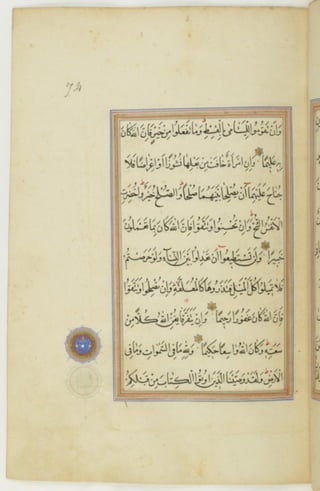 وَأَنْ تَقُومُوا لِلْيَتَامَىٰ بِالْقِسْطِ وَمَا تَفْعَلُوا مِنْ خَيْرٍ فَإِنَّ اللَّهَ كَانَ
بِهِ عَلِيمًا وَإِنِ امْرَأَةٌ خَافَتْ مِنْ بَعْلِهَا نُشُوزًا أَوْ إِعْرَاضًا فَلَا
جُنَاحَ عَلَيْهِمَا أَنْ يُصْلِحَا بَيْنَهُمَا صُلْحًا وَالصُّلْحُ خَيْرٌ وَأُحْضِرَتِ
الْأَنْفُسُ الشُّحَّ وَإِنْ تُحْسِنُوا وَتَتَّقُوا فَإِنَّ اللَّهَ كَانَ بِمَا تَعْمَلُونَ
خَبِيرًا وَلَنْ تَسْتَطِيعُوا أَنْ تَعْدِلُوا بَيْنَ النِّسَاءِ وَلَوْ حَرَصْتُمْ
فَلَا تَمِيلُوا كُلَّ الْمَيْلِ فَتَذَرُوهَا كَالْمُعَلَّقَةِ وَإِنْ تُصْلِحُوا وَتَتَّقُوا
فَإِنَّ اللَّهَ كَانَ غَفُورًا رَحِيمًا وَإِنْ يَتَفَرَّقَا يُغْنِ اللَّهُ كُلًّا مِنْ
سَعَتِهِ وَكَانَ اللَّهُ وَاسِعًا حَكِيمًا وَلِلَّهِ مَا فِي السَّمَوَاتِ وَمَا فِي
الْأَرْضِ وَلَقَدْ وَصَّيْنَا الَّذِينَ أُوتُوا الْكِتَابَ مِنْ قَبْلِكُمْ